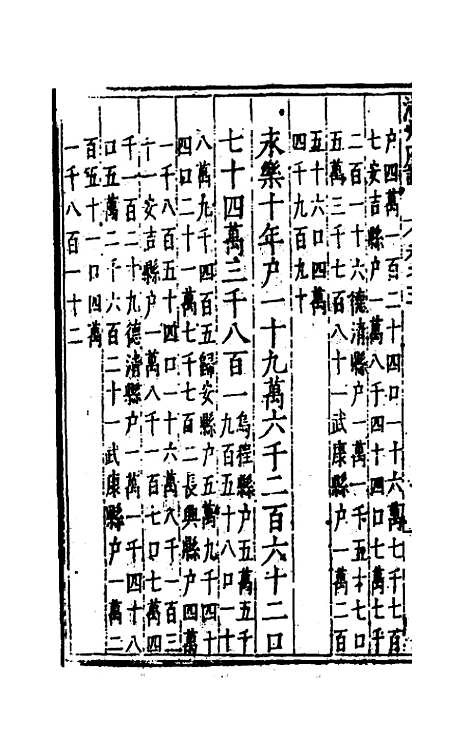 户四萬一百二十四口一十六萬七千七百
七安吉縣户一萬八千四十四口七萬七千
二百一十六德清縣户一萬一千五十七口
五萬三千七百八十一武康縣户一萬二百
五十六口四萬
四千九百九十
永樂十年户一十九萬六千二百六十二口
七十四萬三千八百一烏程縣户五萬五千
九百五十八口一十
八萬九千四百五歸安縣户五萬九千四十
四口二十一萬七千七百二長興縣户四萬
一千八百五十四口一十六萬八千一百三
十一安吉縣户一萬八千一百七口七萬四
千一百二十九德清縣户一萬一千四十八
口五萬二千六百二十一武康縣户一萬二
百五十一口四萬
一千八百一十二